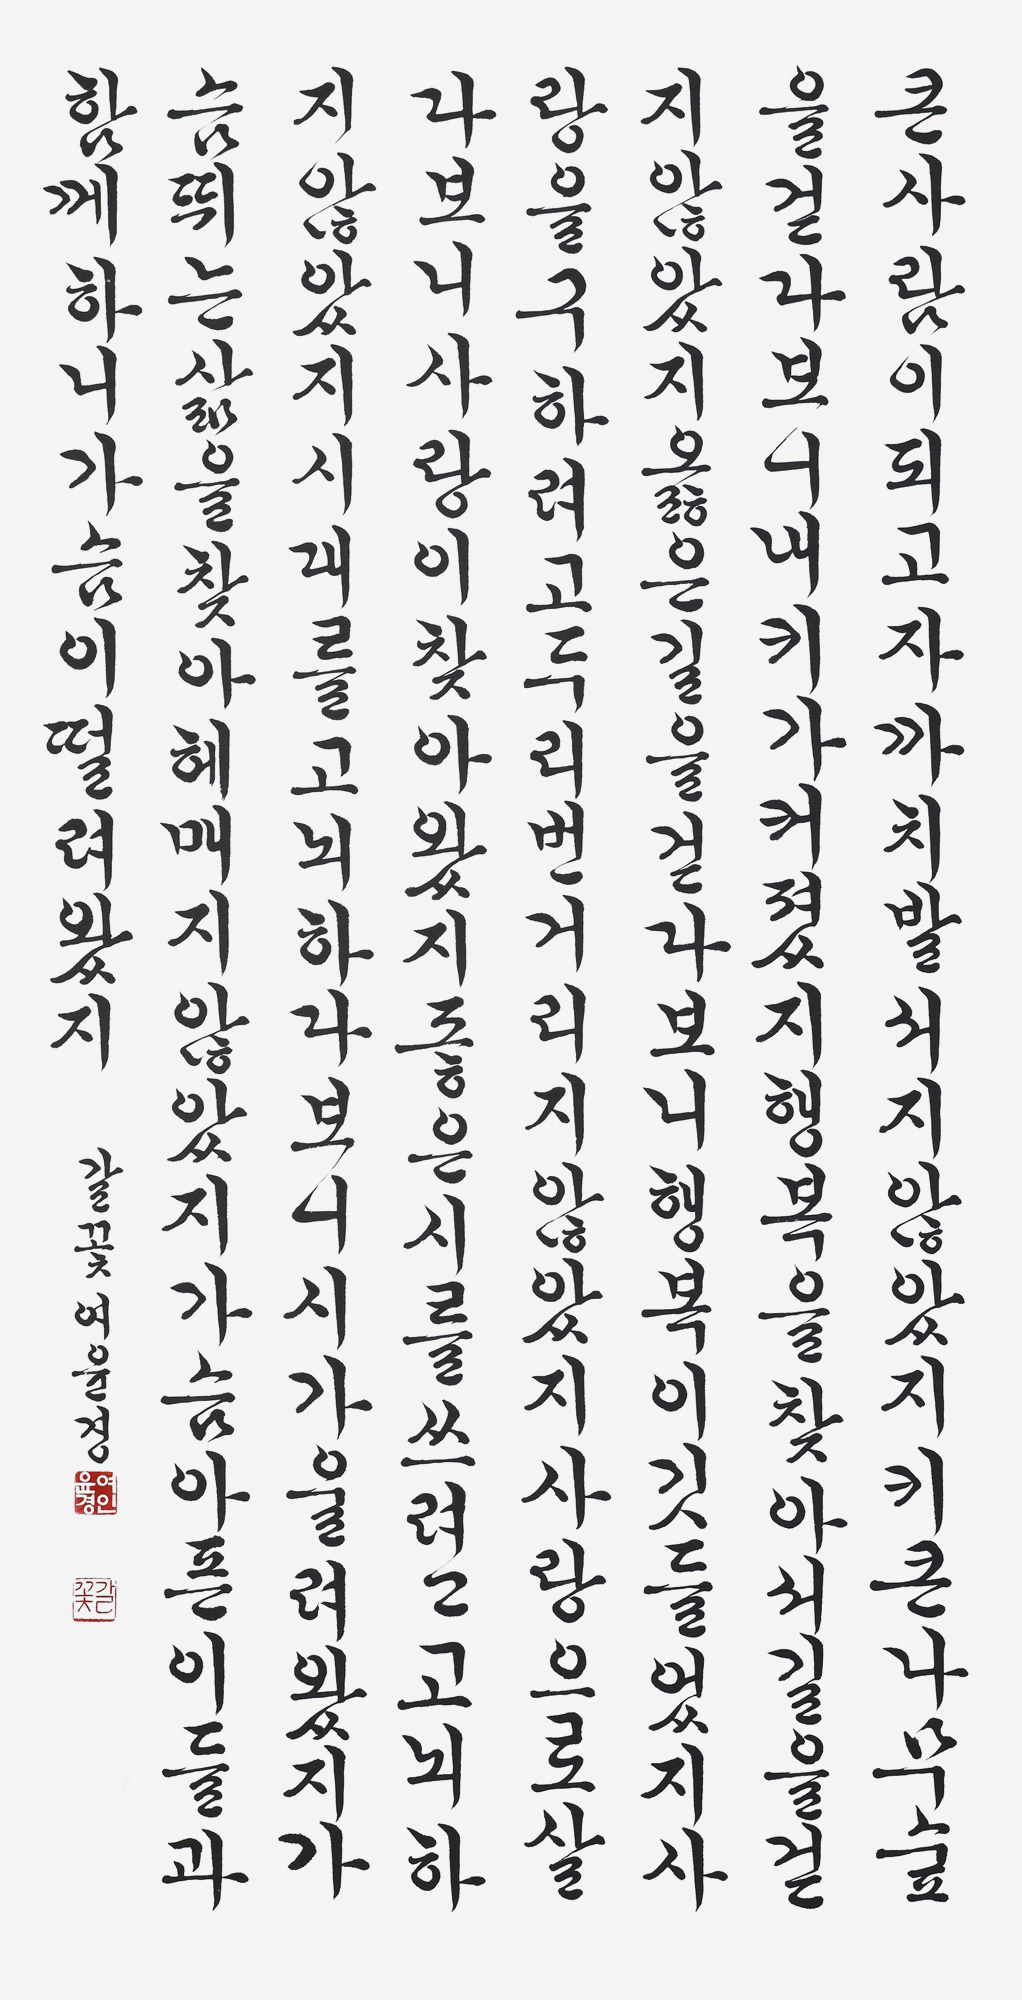 큰사람이되고자까치발서지않았지키큰나무숲
을걷다보니내키가커졌지행복을찾아서길을걷
지않았지옳은길을걷다보니행복이깃들었지사
랑을구하려고두리번거리지않았지사랑으로살
다보니사랑이찾아왔지좋은시를쓰려고고뇌하
지않았지시대를고뇌하다보니시가울려왔지가
슴뛰는삶을찾아헤매지않았지가슴아픈이들과
함께하니가슴이떨려왔지
갈꽃 여윤경
여인윤경
갈꽃